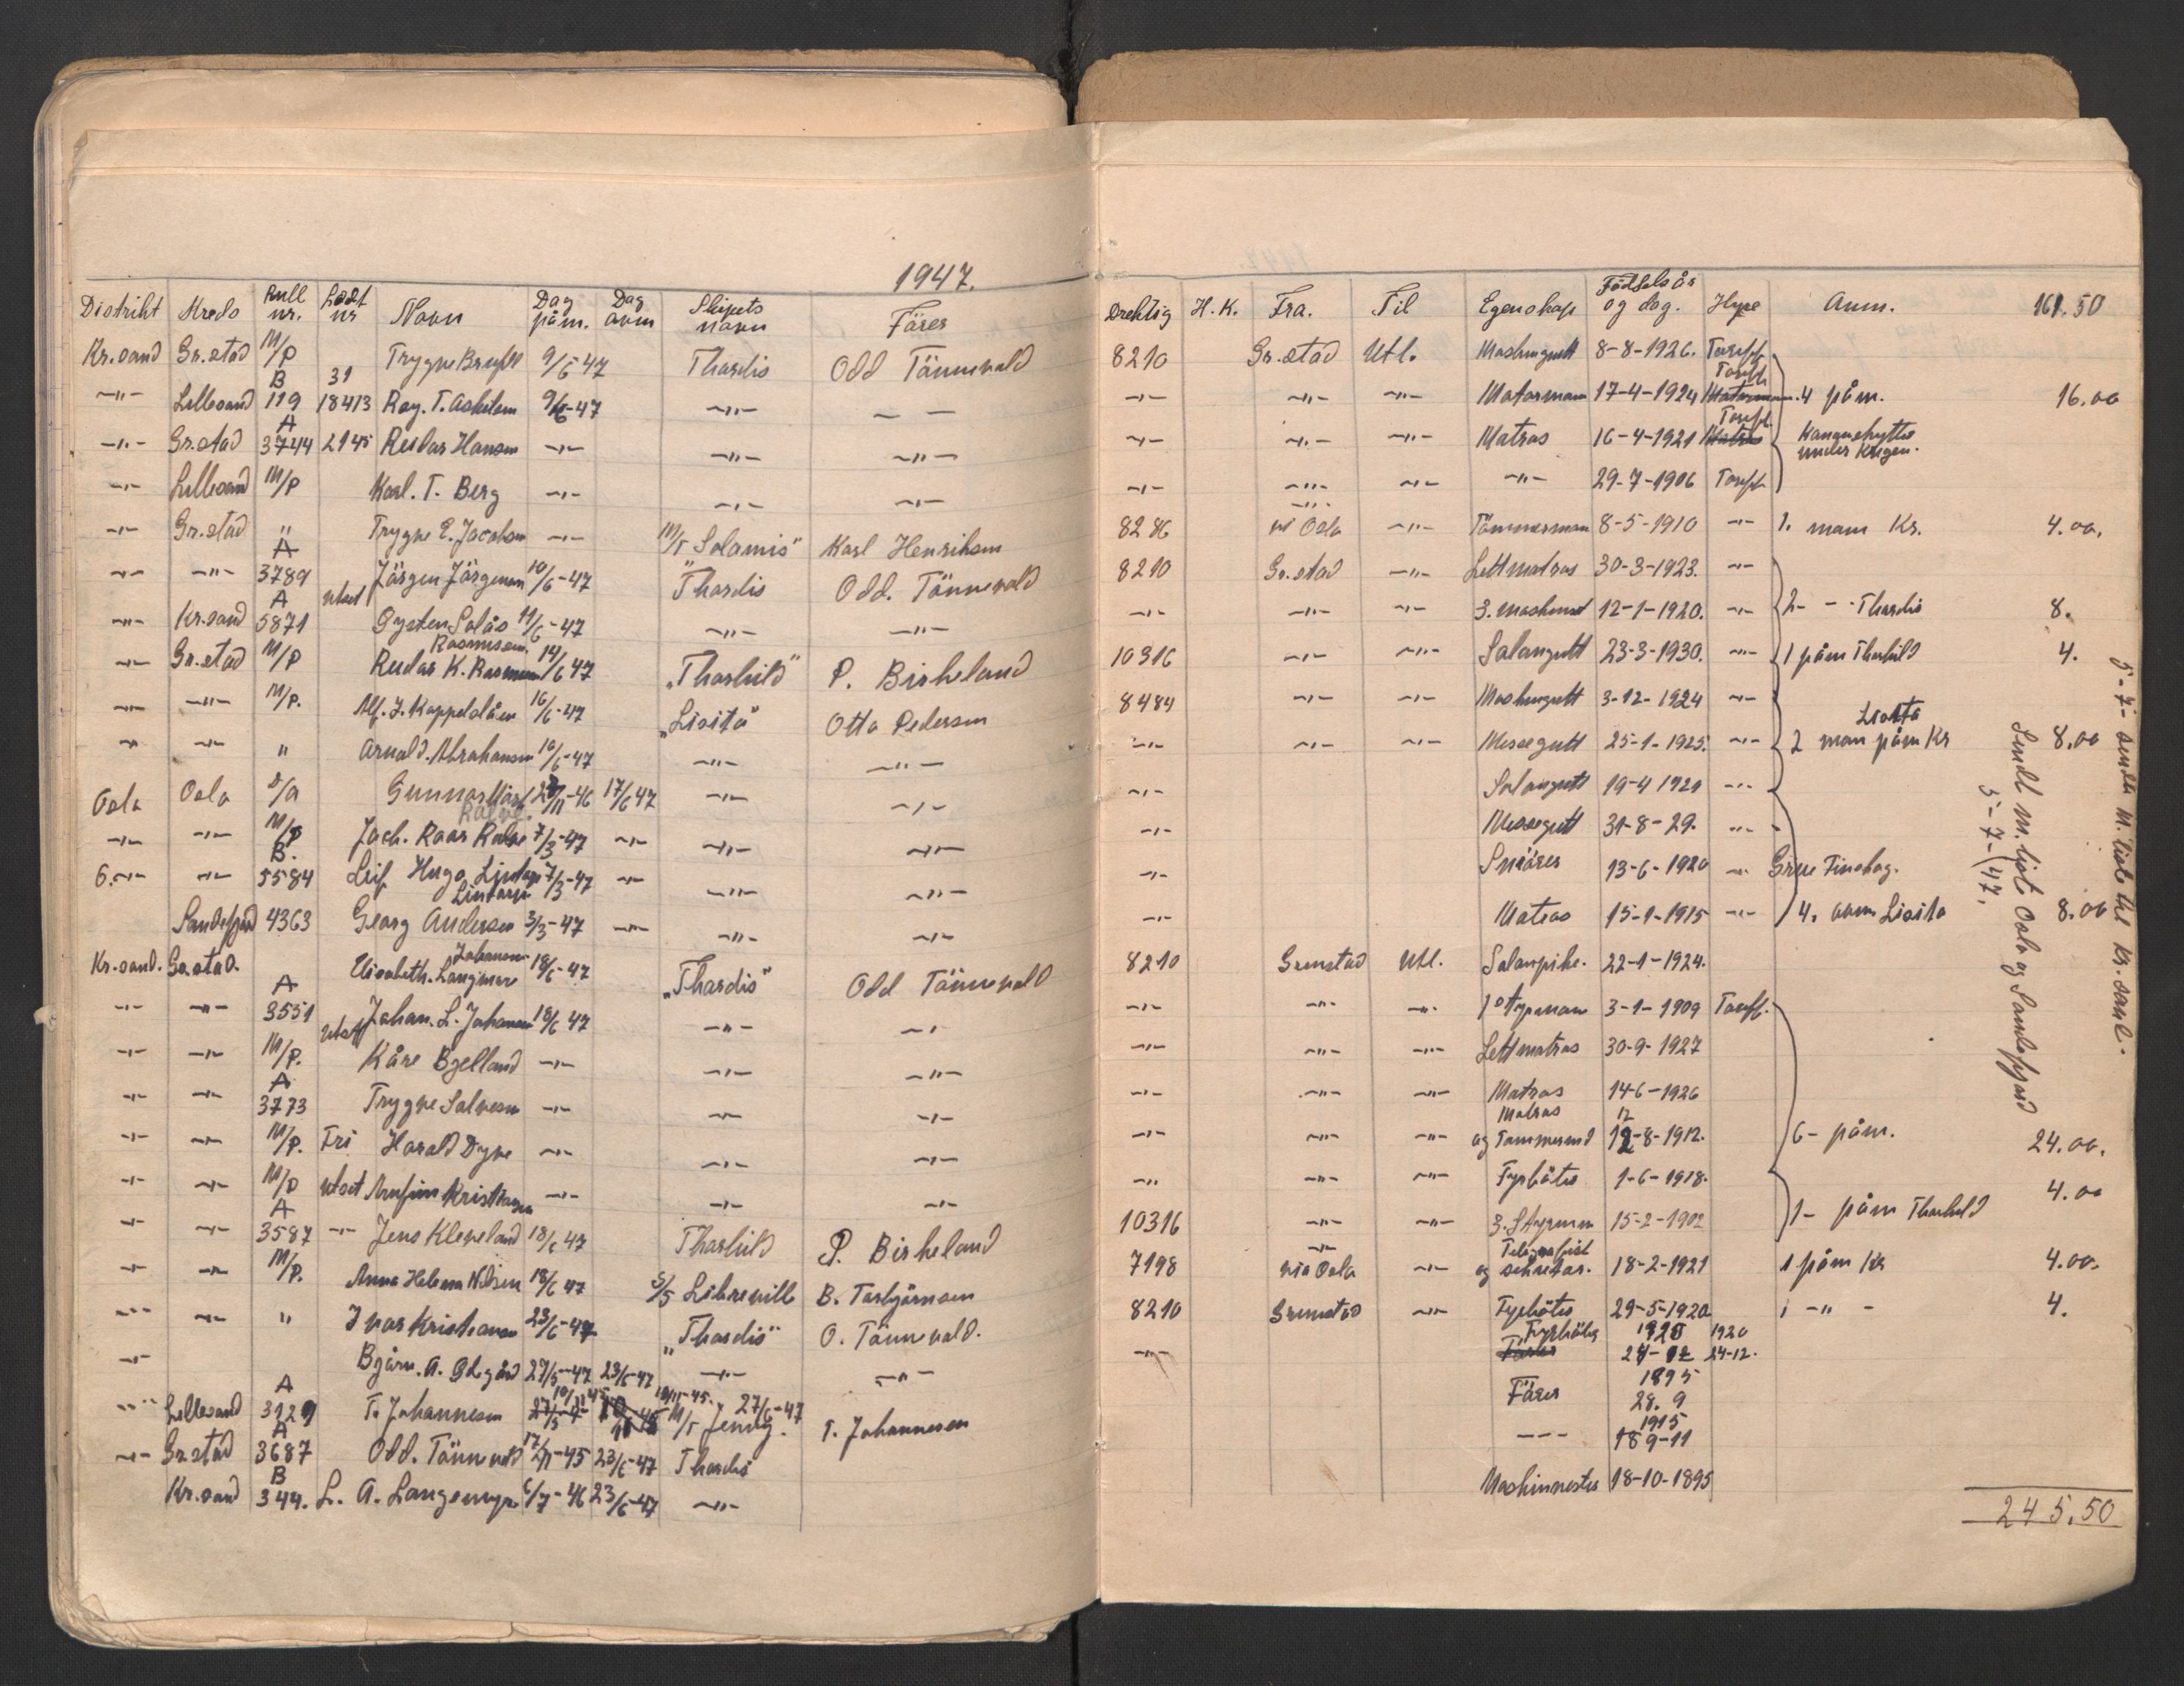 1947.
Distrikt Kreds Rull nr. Lodt nr Navn Dag påm. Dag avm Skipets navn Förer
Kr.sand Gr.stad M/P Trygve 9/6 47 Thordis Odd Tönnevold
-"- Lillesand B 119 31 18413 Roy. T. 9/6-47 -"- - -
-"- Gr.stad A 3744 2145 Reidar Hansen -"- -"- -"-
-"- Lillesand M/P Karl. T. Berg -"- -"- -"-
-"- Gr.stad " Trygve E. Jacobsen -"- M/T Solamis" Karl Henriksen
-"- -"- A 3789 Jörgen Jörgensen 10/6-47 "Thordis Odd. Tönnevold
-"- Kr.sand A 5871 utsat Öysten Solås 11/6-47 -"- -"-
-"- Gr.stad M/P Rasmussen. Reidar K. 14/6 47 "Thorhild" P. Birkeland
-"- -"- M/P. Alf. J. Koppelslåen 16/6-47 "Lisita" Otto Pedersen
-"- -"- " Arnold. Abrahamsen 16/6-47 -"- -"-
Oslo Oslo Gunnar 17/6 47 -"- -"-
-"- -"- M/P Jach. Roar 7/3-47 -"- -"- -"-
6.-"- -"- B. 5584 Leif Hugo 7/3-47 -"- -"- -"-
Sandefjord 4363 Georg Andersen 3/3-47 -"- -"- -"-
Kr.sand. Gr.stad. Johansen Elisabeth. Langmyr 18/6-47 "Thordis" Odd Tönnevold
-"- -"- A 3551 Johan. L. Johansen 18/6 47 -"- -"-
-"- -"- M/P. utsatt Kåre Bjelland -"- -"- -"-
-"- -"- A 3773 Trygve Salvesen -"- -"- -"-
-"- -"- M/P. Fri Harald Dyve -"- -"- -"-
-"- -"- M/P utsat Arnfinn Kristiansen -"- -"- -"-
-"- -"- A 3587 -"- Jens Kleveland 18/6 47 Thorhild P. Birkeland
-"- -"- M/P. Anna Helena Nilsen 18/6 47 S/S Libreville B. Torbjörnsen
-"- -"- " Ivar Kristiansen 23/6-47 "Thordis" O. Tönnevold.
-"- Björn. A. 27/5-47 23/6-47 -"- -"-
-"- Lillesand A 3129 T. Johannesen 27/6-47 M/T Jenny. T. Johannesen
-"- Gr.stad A 3687 Odd. Tönnevold 23/6-47 Thordis
Kr.sand B 344. L. A. Langemyr 6/7-46 23/6-47 -"-
Drektig H.K. Fra. Til Egenskap Födselsår og dag. Hyre Anm. 161.50
8210 Gr.stad Utl. Maskingutt 8-8-1926. Tariff
-"- -"- -"- Motormann 17-4-1924 Tariff Motormann. 4 påm. 16.00
-"- -"- -"- Matros 16-4-1921 Tariff Matros Kanonskytter under Krigen.
-"- -"- -"- -"- 29-7-1906 Tariff
8286 -"- vi Oslo -"- Tömmerman 8-5-1910 -"- 1. mann Kr. 4.00.
8210 Gr.stad -"- Lettmatros 30-3-1923. -"-
-"- -"- -"- 3. maskinist 12-1-1920. -"- 2- - - Thordis 8.
10316 -"- -"- Salongutt 23-3-1930. -"- 1 påm Thorhild 4.
8484 -"- -"- Maskingutt 3-12-1924 -"-
-"- -"- -"- Messegutt 25-1-1925. -"- Lisita 2 man påm Kr 8.00
-"- Salongutt 19-4 1929 -"-
-"- Messegutt 31-8-29. -"-
-"- Smörer 13-6-1920 -"-
-"- Matros 15-1-1915 -"- 4. avm Lisita 8.00
8210 Grimstad Utl. Salonpike. 22-1-1924.
-"- -"- -"- 1ste Styrmann 3-1-1909 Tariff.
-"- -"- -"- Lettmatros 30-9-1927
-"- -"- -"- Matros 14-6-1926
-"- -"- -"- Matros og Tömmermd 12-8-1912. 6- påm. 24.00.
-"- -"- -"- Fyrböter 1-6-1918.
10316 -"- -"- 3. Styrmann 15-2-1902 1- påm Thorhild 4.00
7198 -"- via Oslo -"- Telegrafist og sekretær. 18-2-1921 1 påm Kr 4.00.
8210 Grimstad -"- Fyrböter 29-5-1920 1 -"- - 4.
-"- Fyrböter 1920 24-12.
Förer 1895 28.9
--- 1915 9-11
Maskinmester 18-10-1895
245.50
5-7- sendt M. liste til Kr. sand.
Sendt M. list Oslo og Sandefjord
5-7-(47.